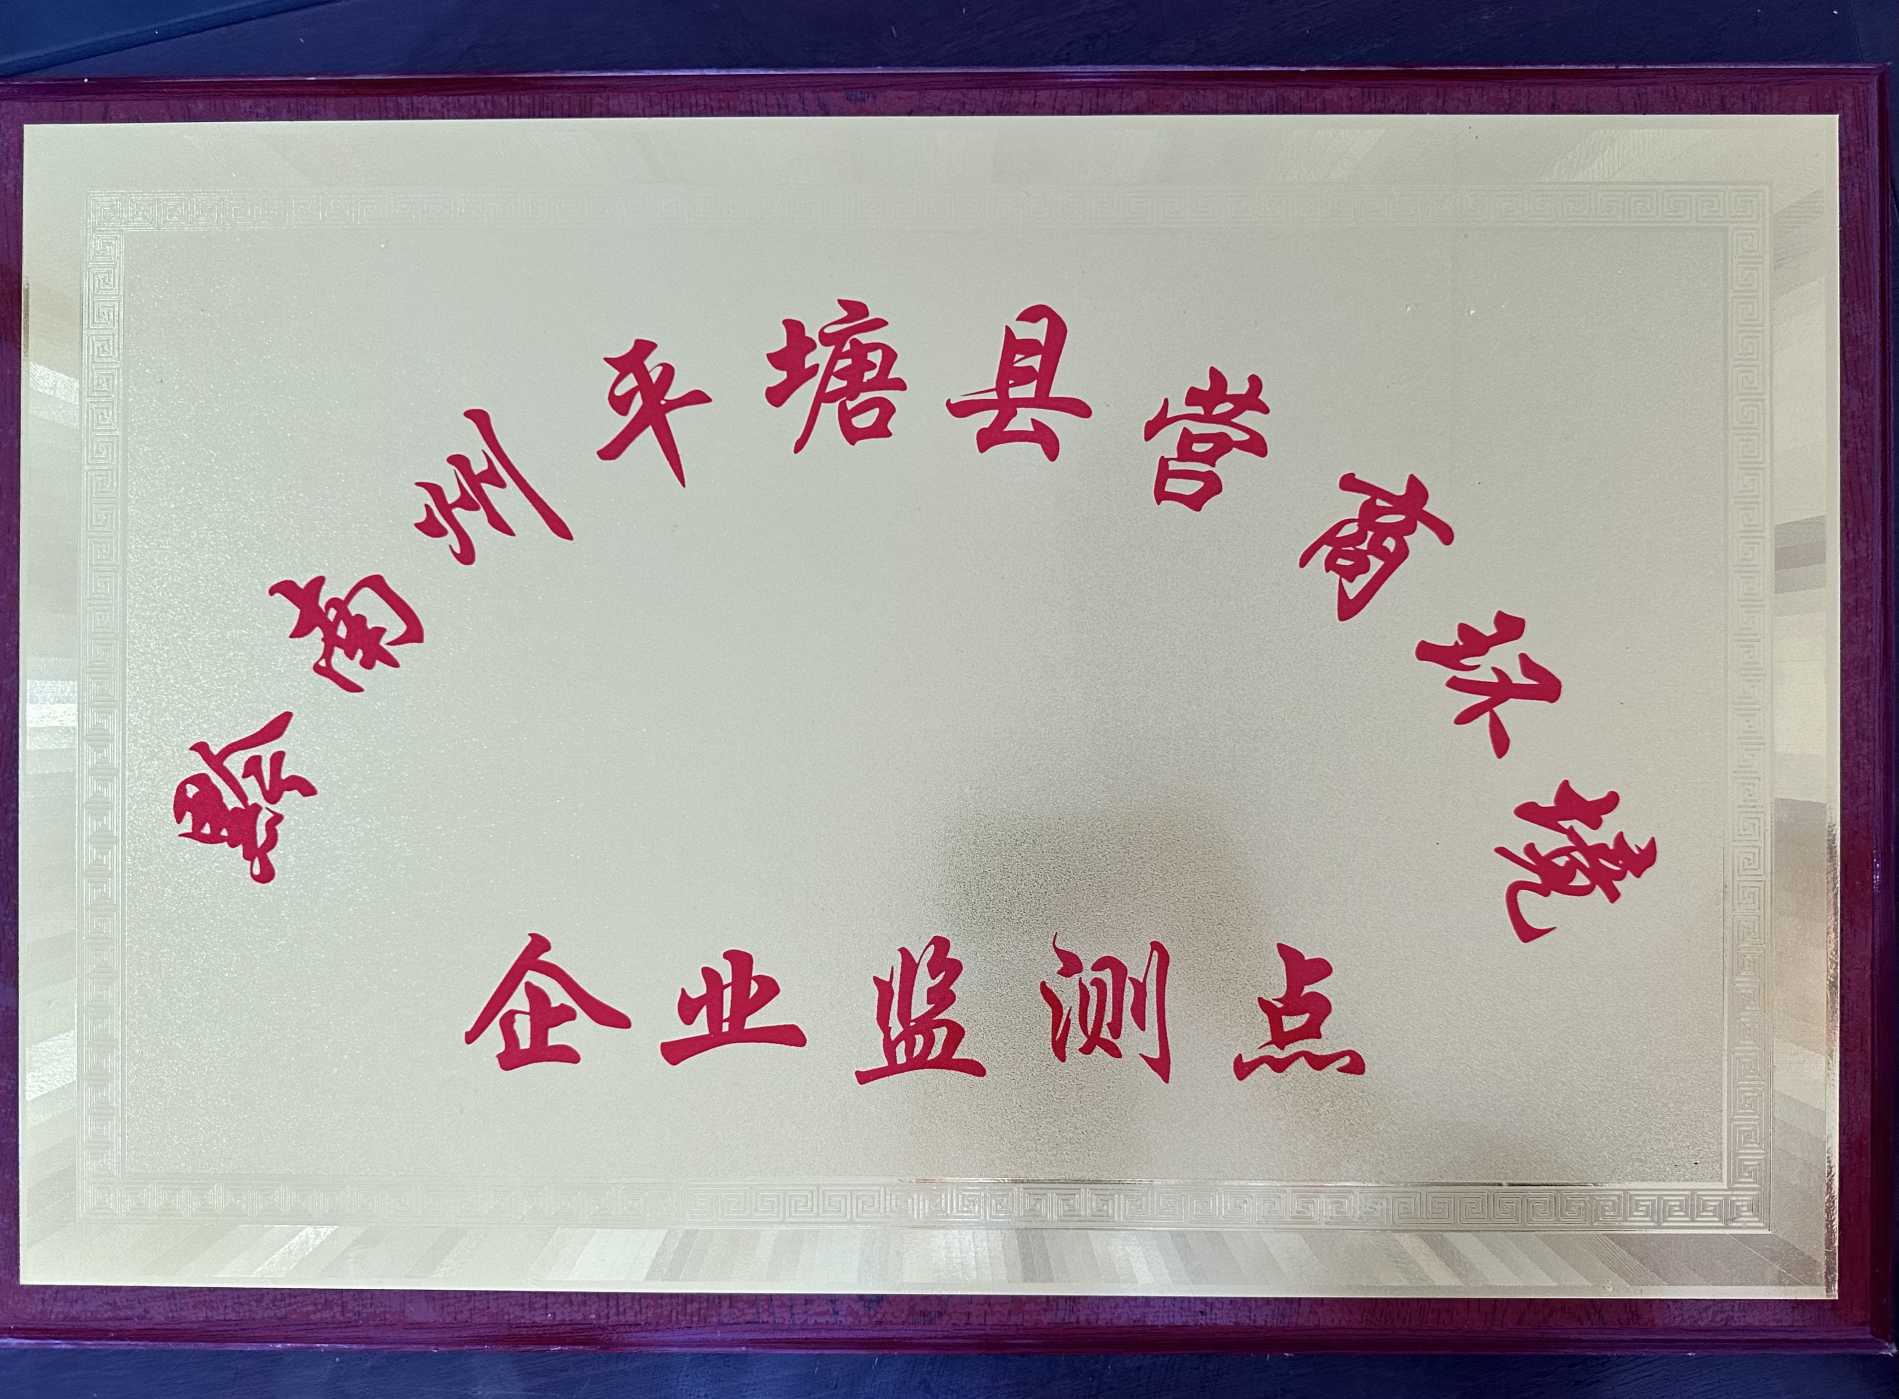 黔南州平塘县营商环境
企业监测点